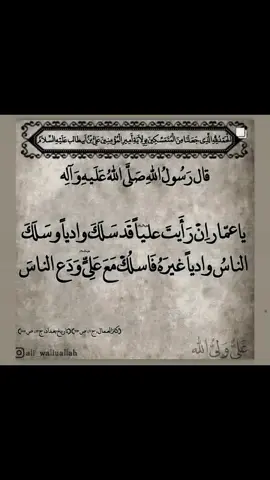 الحمد لله الذي جعلنا من المتمسكين بولاية أمير المؤمنين علي بن أبي طالب عليه السلام
قال رَسُولُ اللهِ صَلَّى اللهُ عَلَيهِ وَآلِه
يا عمّار اِنْ رَأَيتَ عليّاً قَد سَلَكَ وادياً وسَلَكَ
الناسُ وادياً غيرَهُ فَاسلُكْ مَعَ عَليٍّ وَدَع الناسَ
ali_waliuallah
عَليٌّ وَليُّ الله